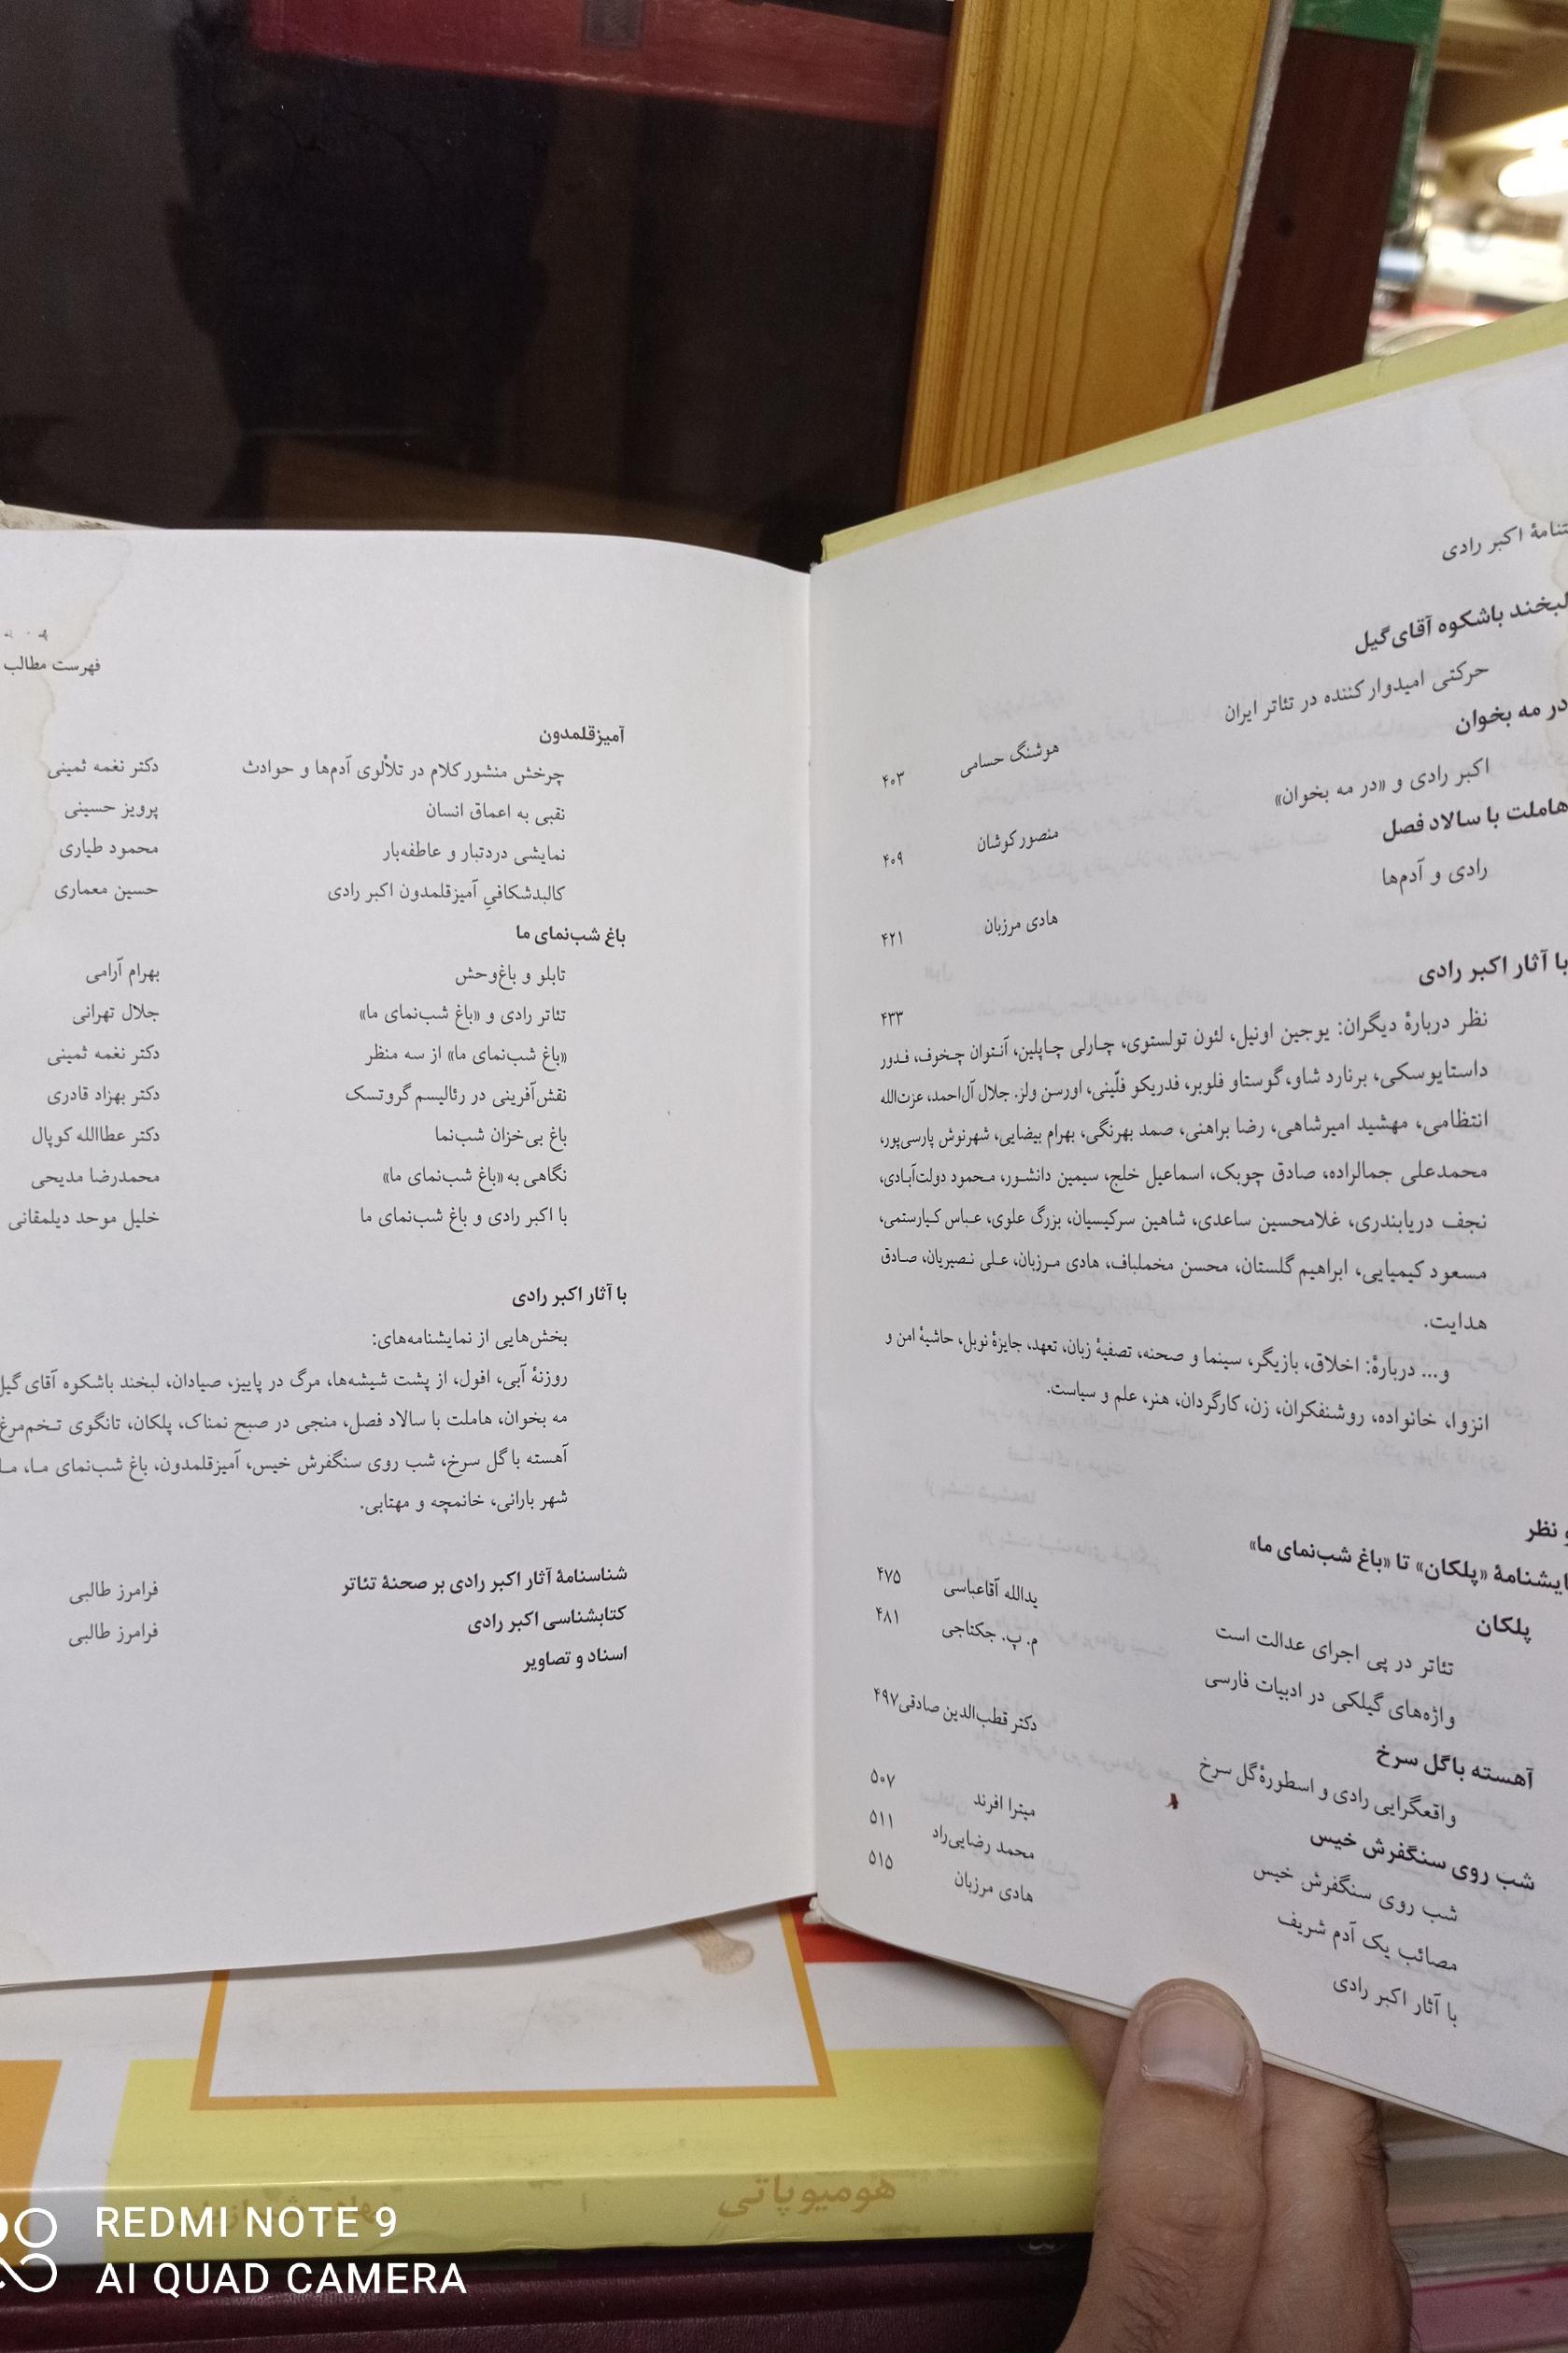 اکبر رادی
لبخند باشکوه آقای‌گیل
حرکتی امیدوار کننده در تئاتر ایران
هوشنگ حسامی ۴۰۳
در مه بخوان
اکبر رادی و «در مه بخوان»
منصور کوشان ۴۰۹
هاملت با سالاد فصل
رادی و آدم‌ها
هادی مرزبان ۴۲۱
با آثار اکبر رادی
۴۳۳
نظر دربارهٔ دیگران: یوجین اونیل، لئون تولستوی، چارلی چاپلین، آنتوان چخوف، فدور
داستایوسکی، برنارد شاو، گوستاو فلوبر، فدریکو فلّینی، اورسن ولز. جلال آل‌احمد، عزت‌الله
انتظامی، مهشید امیرشاهی، رضا براهنی، صمد بهرنگی، بهرام بیضایی، شهرنوش پارسی‌پور،
محمدعلی جمالزاده، صادق چوبک، اسماعیل خلج، سیمین دانشور، محمود دولت‌آبادی،
نجف دریابندری، غلامحسین ساعدی، شاهین سرکیسیان، بزرگ علوی، عباس کیارستمی،
مسعود کیمیایی، ابراهیم گلستان، محسن مخملباف، هادی مرزبان، علی نصیریان، صادق
هدایت.
و... دربارهٔ: اخلاق، بازیگر، سینما و صحنه، تصفیهٔ زبان، تعهد، جایزهٔ نوبل، حاشیهٔ امن و
انزوا، خانواده، روشنفکران، زن، کارگردان، هنر، علم و سیاست.
و نظر
«پلکان» تا «باغ شب‌نمای ما»
پلکان
تئاتر در پی اجرای عدالت است یدالله آقاعباسی ۴۷۵
واژه‌های گیلکی در ادبیات فارسی م. پ. جکتاجی ۴۸۱
آهسته با گل سرخ
واقعگرایی رادی و اسطورهٔ گل سرخ دکتر قطب‌الدین صادقی ۴۹۷
شب روی سنگفرش خیس
شب روی سنگفرش خیس میترا افرند ۵۰۷
مصائب یک آدم شریف محمد رضایی‌راد ۵۱۱
با آثار اکبر رادی هادی مرزبان ۵۱۵
فهرست مطالب
آمیزقلمدون
چرخش منشور کلام در تلألوی آدم‌ها و حوادث دکتر نغمه ثمینی
نقبی به اعماق انسان پرویز حسینی
نمایشی دردتبار و عاطفه‌بار محمود طیاری
کالبدشکافیِ آمیزقلمدون اکبر رادی حسین معماری
باغ شب‌نمای ما
تابلو و باغ‌وحش بهرام آرامی
تئاتر رادی و «باغ شب‌نمای ما» جلال تهرانی
«باغ شب‌نمای ما» از سه منظر دکتر نغمه ثمینی
نقش‌آفرینی در رئالیسم گروتسک دکتر بهزاد قادری
باغ بی‌خزان شب‌نما دکتر عطاالله کوپال
نگاهی به «باغ شب‌نمای ما» محمدرضا مدیحی
با اکبر رادی و باغ شب‌نمای ما خلیل موحد دیلمقانی
با آثار اکبر رادی
بخش‌هایی از نمایشنامه‌های:
روزنهٔ آبی، افول، از پشت شیشه‌ها، مرگ در پاییز، صیادان، لبخند باشکوه آقای گیل
مه بخوان، هاملت با سالاد فصل، منجی در صبح نمناک، پلکان، تانگوی تخم‌مرغ
آهسته با گل سرخ، شب روی سنگفرش خیس، آمیزقلمدون، باغ شب‌نمای ما،
شهر بارانی، خانمچه و مهتابی.
شناسنامهٔ آثار اکبر رادی بر صحنهٔ تئاتر فرامرز طالبی
کتابشناسی اکبر رادی فرامرز طالبی
اسناد و تصاویر
هومیوپاتی
REDMI NOTE 9
AI QUAD CAMERA